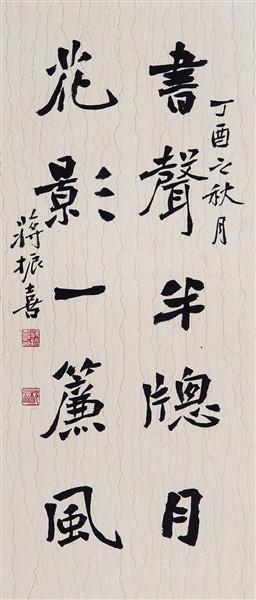 丁酉之秋月
書聲半牕月
花影一簾風
蔣振喜